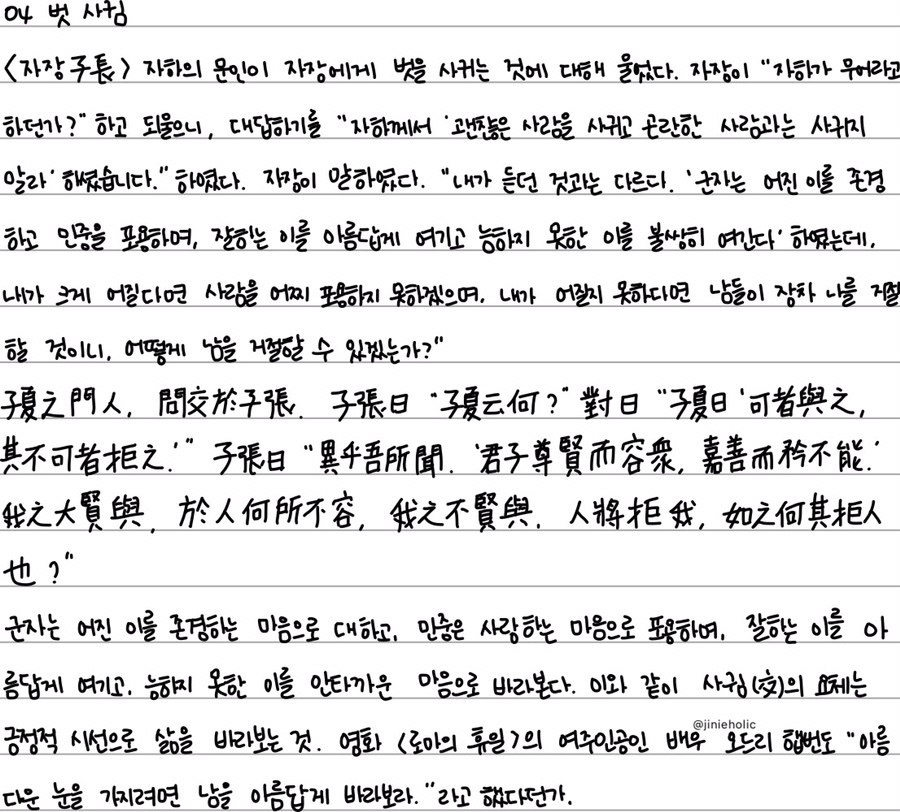 04 벗 사귐
<자장子長> 자하의 문인이 자장에게 벗을 사귀는 것에 대해 물었다. 자장이 "자하가 무어라고
하던가?" 하고 되물으니, 대답하기를 "자하께서 '괜찮은 사람을 사귀고 곤란한 사람과는 사귀지
말라' 하셨습니다." 하였다. 자장이 말하였다. "내가 듣던 것과는 다르다. '군자는 어진 이를 존경
하고 민중을 포용하며, 잘하는 이를 아름답게 여기고 능하지 못한 이를 불쌍히 여긴다' 하였는데,
내가 크게 어질다면 사람을 어찌 포용하지 못하겠으며, 내가 어질지 못하다면 남들이 장차 나를 거절
할 것이니, 어떻게 남을 거절할 수 있겠는가?"
子夏之門人, 問交於子張. 子張曰 "子夏云何?" 對曰 "子夏曰 '可者與之,
其不可者拒之.'" 子張曰 "異乎吾所聞. '君子尊賢而容衆, 嘉善而矜不能.'
我之大賢與, 於人何所不容, 我之不賢與, 人將拒我, 如之何其拒人
也?"
군자는 어진 이를 존경하는 마음으로 대하고, 민중은 사랑하는 마음으로 포용하며, 잘하는 이를 아
름답게 여기고, 능하지 못한 이를 안타까운 마음으로 바라본다. 이와 같이 사귐(交)의 요체는
@jinieholic
긍정적 시선으로 삶을 바라보는 것. 영화 <로마의 휴일>의 여주인공인 배우 오드리 햅번도 "아름
다운 눈을 가지려면 남을 아름답게 바라보라."라고 했다던가.